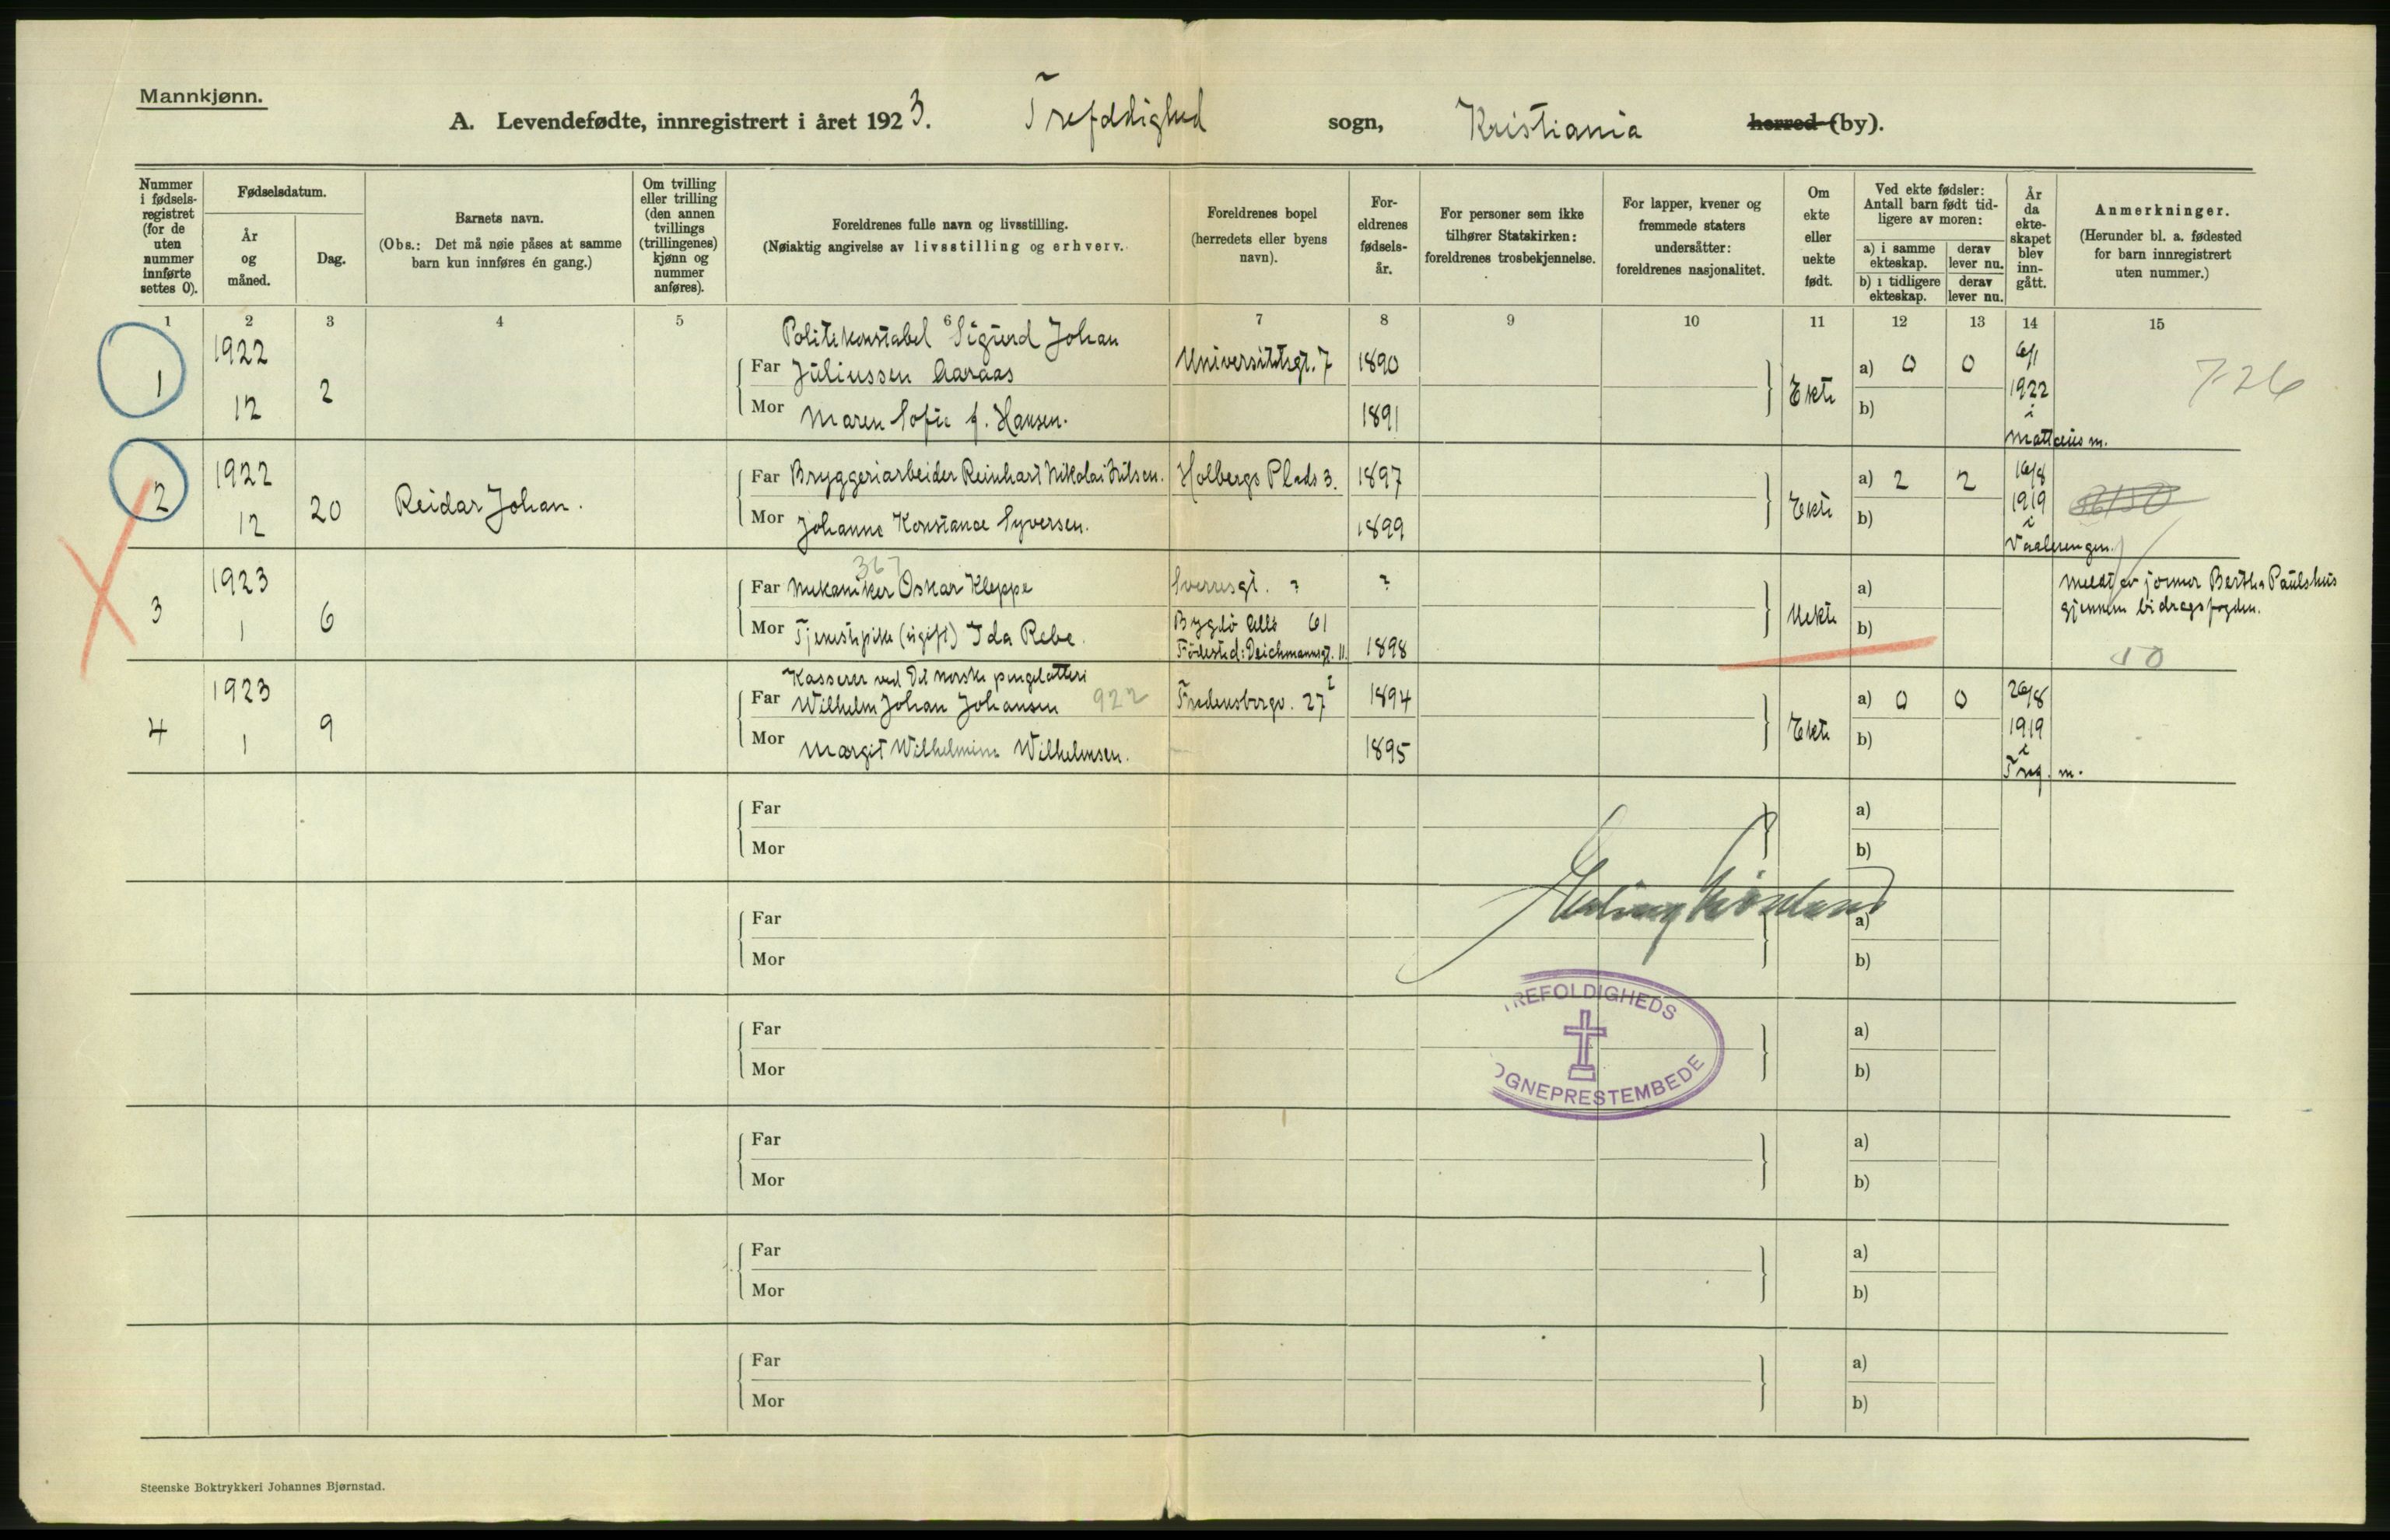 Mannkjønn.
A. Levendefødte, innregistrert i året 1923. Trefoldighed sogn, Kristiania herred (by).
Nummer i fødsels-registret (for de uten nummer innførte settes 0).
Fødselsdatum.
År og måned.
Dag.
Barnets navn.
(Obs.: Det må nøie påses at samme barn kun innføres én gang.)
Om tvilling eller trilling (den annen tvillings (trillingenes) kjønn og nummer anføres).
Foreldrenes fulle navn og livsstilling.
(Nøiaktig angivelse av livsstilling og erhverv.
Foreldrenes bopel (herredets eller byens navn).
For-eldrenes fødsels-år.
For personer som ikke tilhører Statskirken: foreldrenes trosbekjennelse.
For lapper, kvener og fremmede staters undersåtter: foreldrenes nasjonalitet.
Om ekte eller uekte født.
Ved ekte fødsler: Antall barn født tid-ligere av moren:
a) i samme ekteskap.
derav lever nu.
b) i tidligere ekteskap.
derav lever nu.
År da ekte-skapet blev inn-gått.
Anmerkninger.
(Herunder bl. a. fødested for barn innregistrert uten nummer.)
1 2 3 4 5 6 7 8 9 10 11 12 13 14 15
1 1922 12 2
Politikonstabel Sigurd Johan
Far Juliussen Aaraas Universitetsgt. 7 1890
Mor Maren Sofie f. Hansen. 1891
Ekte a) 0 0 6/1 1922 i Mattæus m.
b)
726
2 1922 12 20 Reidar Johan.
Far Bryggeriarbeider Reinhart Nikolai Nilsen. Holbergs Plads 3. 1897
Mor Johanne Konstance Syversen. 1899
Ekte a) 2 2 16/8 1919 i Vaalerengen.
b)
3 1923 1 6
367
Far Mekaniker Oskar Kleppe Sverresgt. ? ?
Mor Tjenestepike (ugift) Ida Rebe. Bygdø Allé 61
Fødested: Deichmannsgt. 11. 1898
Uekte a)
b)
Meldt av jormor Bertha Paulshus
gjennem bidragsfogden.
10
4 1923 1 9
Kasserer ved Det norske pengelotteri
Far Wilhelm Johan Johansen 922 Fredensborgv. 27 I 1894
Mor Margit Wilhelmine Wilhelmsen. 1895
Ekte a) 0 0 26/8 1919 i Treg. m.
b)
Far a)
Mor b)
Far a)
Mor b)
Far a)
Mor b)
REFOLDIGHEDS
OGNEPRESTEMBEDE
Far a)
Mor b)
Far a)
Mor b)
Far a)
Mor b)
Steenske Boktrykkeri Johannes Bjørnstad.